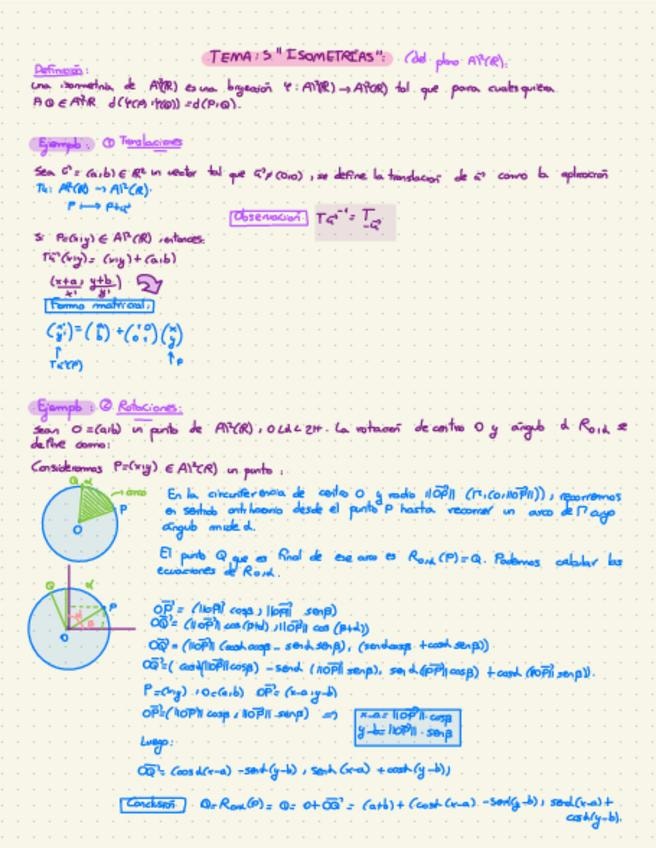 TEMA: 5 "ISOMETRÍAS": (del plano A²(R)).
Definición:
una isometría de A²(R) es una biyección φ: A²(R) → A²(R) tal que para cualesquiera
P, Q ∈ A²(R) d(φ(P), φ(Q)) = d(P,Q).
Ejemplo: ① Translaciones
Sea u⃗ = (a,b) ∈ R² un vector tal que u⃗ ≠ (0,0), se define la translación de u⃗ como la aplicación
Tu⃗: A²(R) → A²(R).
P ⟼ P+u⃗
Observación: Tu⃗⁻¹ = T₋u⃗
Si P=(x,y) ∈ A²(R), entonces:
Tu⃗(x,y) = (x,y) + (a,b)
(x+a, y+b)
x' y'
Forma matricial:
(x' y') = (a b) + (1 0 0 1)(x y)
↑ ↑ P
Tu⃗(P)
Ejemplo: ② Rotaciones:
Sean O=(a,b) un punto de A²(R), 0<α<2π. La rotación de centro O y ángulo α R₀,α se
define como:
Consideramos P=(x,y) ∈ A²(R) un punto:
Q α
arco
P
O
En la circunferencia de centro O y radio ||OP⃗|| (Γ,(O,||OP⃗||)), recorremos
en sentido antihorario desde el punto P hasta recorrer un arco de Γ cuyo
ángulo mide α.
El punto Q que es final de ese arco es R₀,α(P)=Q. Podemos calcular las
ecuaciones de R₀,α.
Q α
P
O
OP⃗ = (||OP⃗|| cosβ, ||OP⃗|| senβ)
OQ⃗ = (||OP⃗|| cos(β+α), ||OP⃗|| cos(β+α))
OQ⃗ = (||OP⃗|| (cosα cosβ - senα senβ), (senα cosβ + cosα senβ))
OQ⃗ = (cosα(||OP⃗|| cosβ) - senα (||OP⃗|| senβ), senα(||OP⃗|| cosβ) + cosα (||OP⃗|| senβ)).
P=(x,y), O=(a,b) OP⃗ = (x-a, y-b)
OP⃗ = (||OP⃗|| cosβ, ||OP⃗|| senβ) ⇒ x-a = ||OP⃗|| · cosβ
y-b = ||OP⃗|| · senβ
Luego:
OQ⃗ = (cosα(x-a) - senα(y-b), senα(x-a) + cosα(y-b))
Conclusión Q = R₀,α(P) = Q = O+OQ⃗ = (a+b) + (cosα(x-a) - senα(y-b), senα(x-a) +
cosα(y-b)).